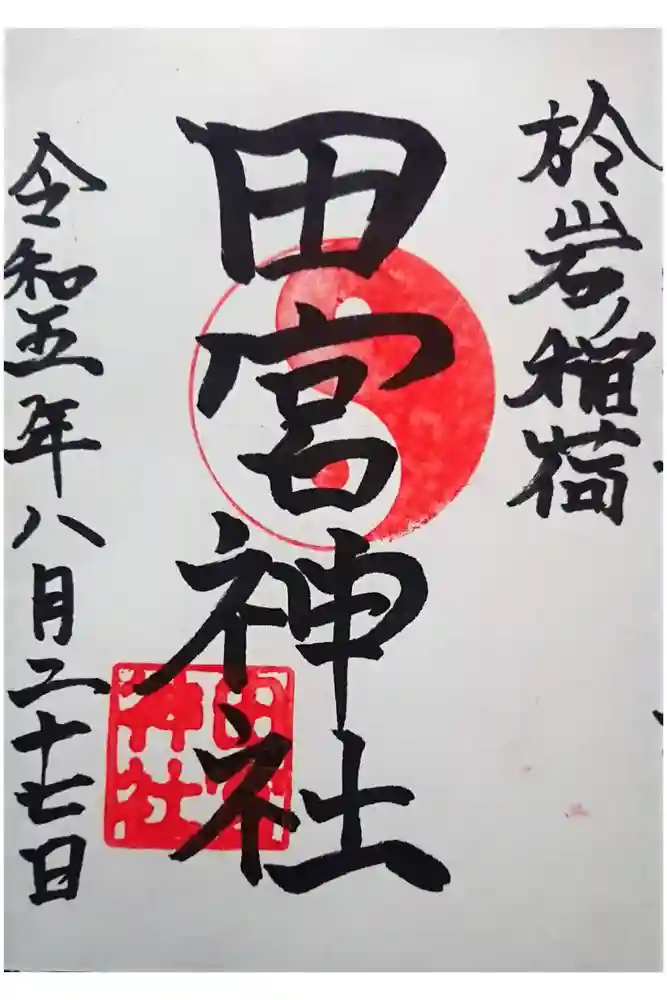 於岩稲荷
田宮神社
令和五年八月二十七日
田宮
神社